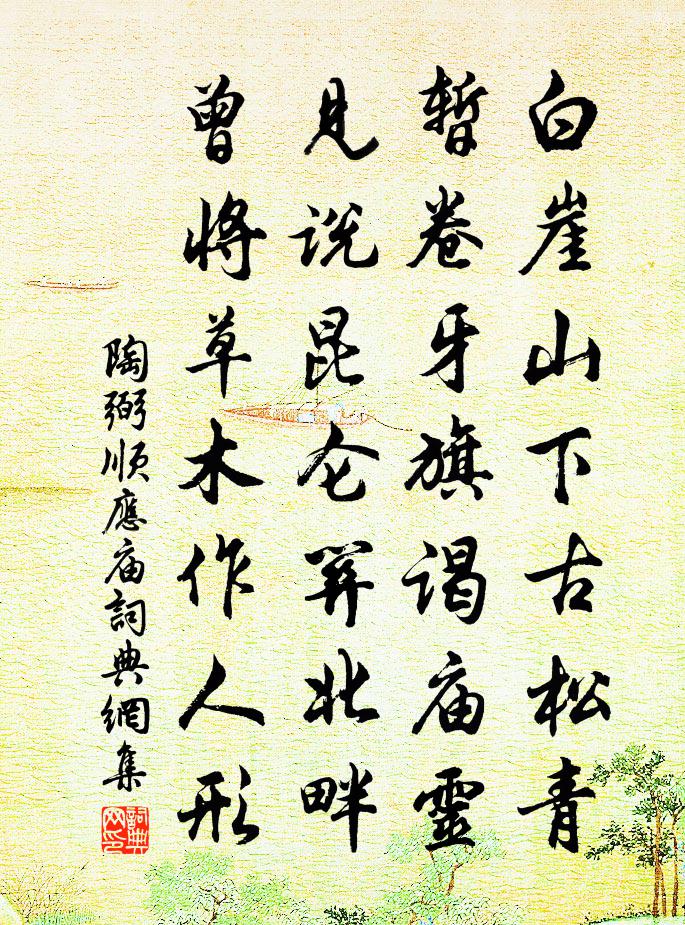 白崖山下古松青
暫卷牙旗谒庙靈
見说昆仑関北畔
曾将草木作人形
陶弼順應庙詞典網集
詞典网印